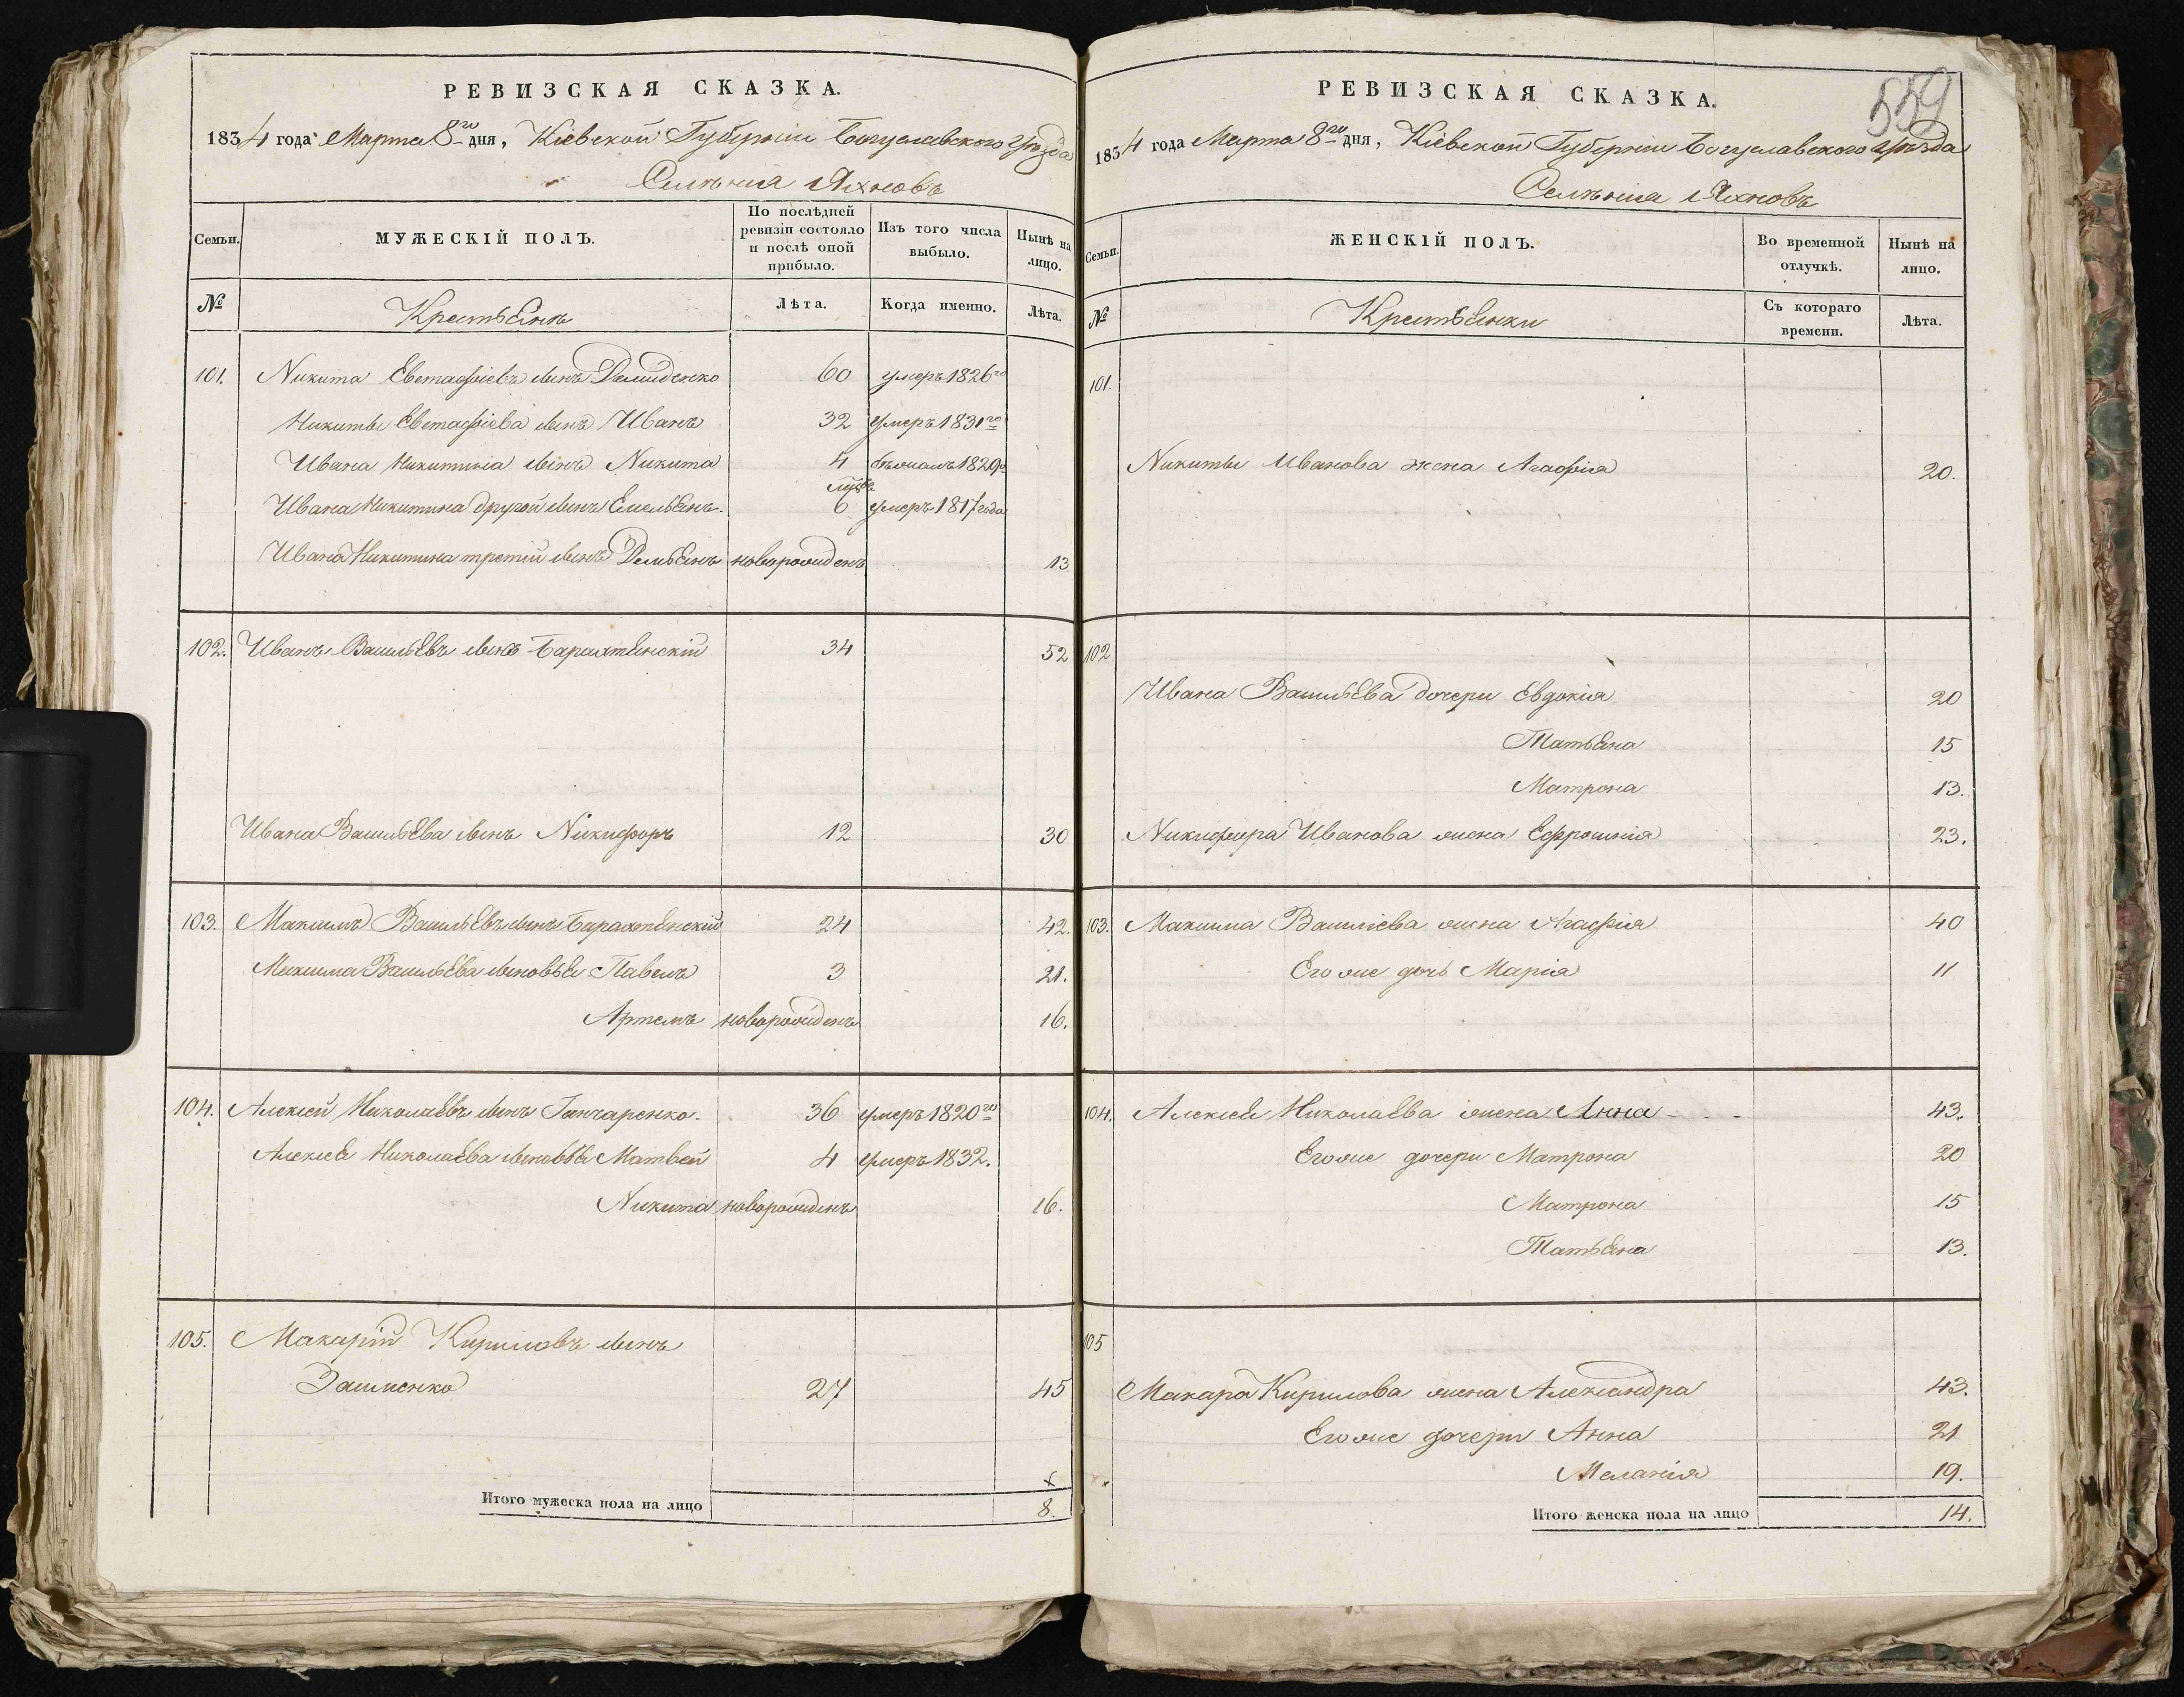 РЕВИЗСКАЯ СКАЗКА.
1834 года Марта 8го дня, Кіевской Губерніи Богуславского Уѣзда
Селѣнія Яхновъ
Семьи.
МУЖЕСКІЙ ПОЛЪ.
По послѣдней ревизіи состояло и послѣ оной прибыло.
Изъ того числа выбыло.
Нынѣ на лицо.
№
Крестьянъ
Лѣта.
Когда именно.
Лѣта.
101. Никита Евстафіевъ сынъ Демиденко 60 умеръ 1826го
Никиты Евстафіева сынъ Иванъ 32 умеръ 1831го
Ивана Никитина сынъ Никита 4 1829
Ивана Никитина другой сынъ Емельянъ 6 умеръ 1817 года
Ивана Никитина третій сынъ Демьянъ новорожденъ 13
102. Иванъ Васильевъ сынъ Барахтянскій 34 52
Ивана Васильева сынъ Никифоръ 12 30
103. Максимъ Васильевъ сынъ Барахтянскій 24 42.
Максима Васильева сыновья Павелъ 3 21.
Артемъ новорожденъ 16.
104. Алексей Николаевъ сынъ Ганчаренко. 36 умеръ 1820го
Алексея Николаева сыновья Матвей 4 умеръ 1832.
Никита новорожденъ 16.
105. Макарій Кириловъ сынъ
27 45
Итого мужеска пола на лицо 8.
559
РЕВИЗСКАЯ СКАЗКА.
1834 года Марта 8го дня, Кіевской Губерніи Богуславского Уѣзда
Селѣнія Яхновъ
Семьи.
ЖЕНСКІЙ ПОЛЪ.
Во временной отлучкѣ.
Нынѣ на лицо.
№
Крестьянки
Съ котораго времени.
Лѣта.
101.
Никиты Иванова жена Агафія 20.
102
Ивана Васильева дочери Евдокія 20
Татьяна 15
Матрона 13.
Никифора Иванова жена Ефросинія 23.
103. Максима Василіева жена Агафія 40
Его же дочь Марія 11
104. Алексея Николаева жена Анна - - - 43.
Его же дочери Матрона 20
Матрона 15
Татьяна 13.
105
Макара Кирилова жена Александра 43.
Его же дочери Анна 21
Меланія 19.
Итого женска пола на лицо 14.